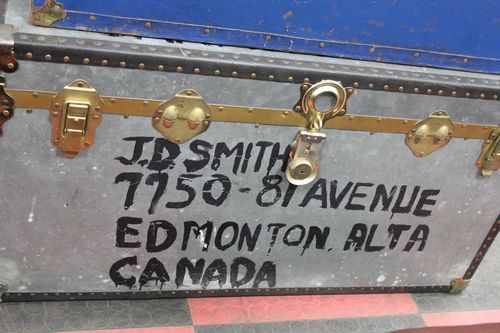 J.D. SMITH
7750-81 AVENUE
EDMONTON, ALTA
CANADA